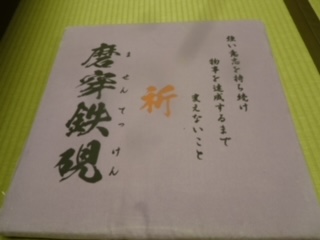 強い意志を持ち続け
物事を達成するまで
変えないこと
祈
磨穿鉄硯
ませんてっけん